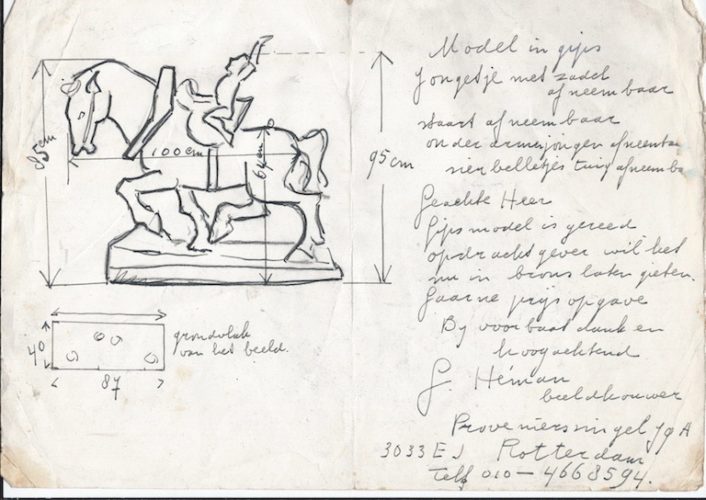 85 cm
100 cm
64 cm
95 cm
grondvlak
van het beeld.
40
87
Model in gips
Jongetje met zadel
afneembaar
staart afneembaar
onderarm jongen afneemba
vier belletjes tuig afneemba
Geachte Heer
Gips model is gereed
opdrachtgever wil het
nu in brons laten gieten.
Gaarne prijs opgave
By voorbaat dank en
hoogachtend
G. Héman
beeldhouwer
Proveniersingel
3033 EJ Rotterdam
Telf 010 – 4668594.